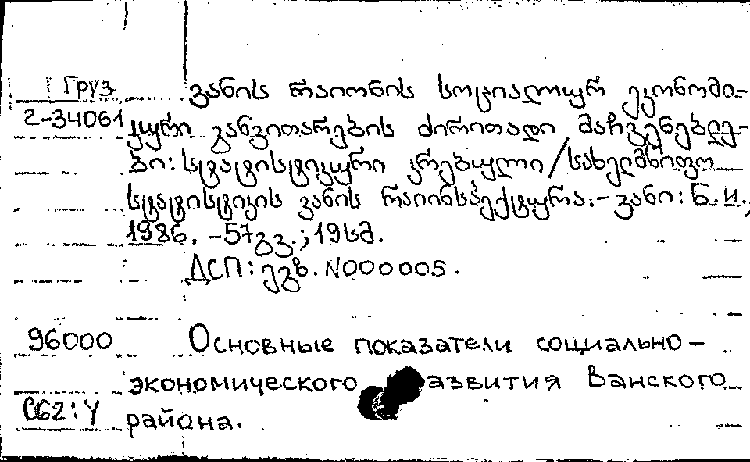 Груз
ვანის რაიონის სოციალურ ეკონომი-
2-34061
კური განვითარების ძირითადი მაჩვენებლე-
ბი: სტატისტიკური კრებული/სახელმწიფო
სტატისტიკის ვანის რაიინსპექტურა.-ვანი: Б.И.,
1986. -57გვ.; 19სმ.
ДСП: ეგზ. N000005.
96000
Основные показатели социально-
экономического азвития Ванского
С62:У
района.